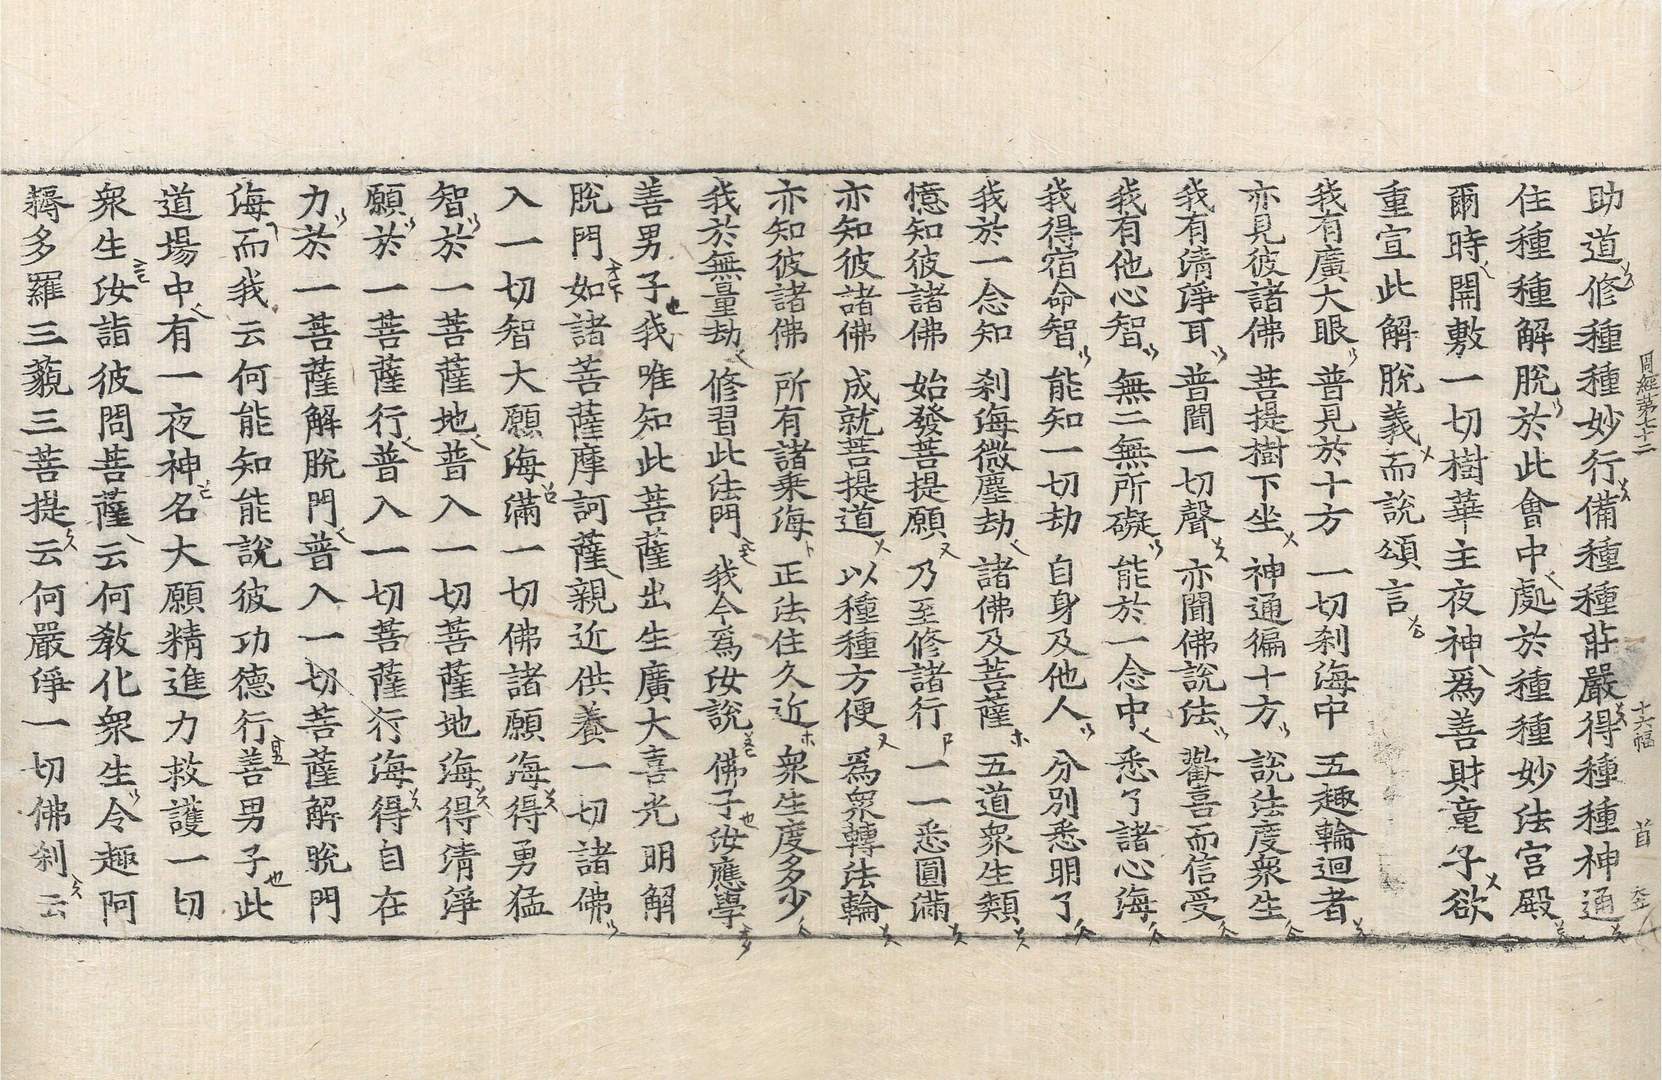 周經第七十二 十六幅 首
助道修種種妙行備種種莊嚴得種種神通
住種種解脫於此會中處於種種妙法宮殿
爾時開敷一切樹華主夜神爲善財童子欲
重宣此解脫義而說頌言
我有廣大眼 普見於十方 一切刹海中 五趣輪迴者
亦見彼諸佛 菩提樹下坐 神通徧十方 說法度衆生
我有淸淨耳 普聞一切聲 亦聞佛說法 歡喜而信受
我有他心智 無二無所礙 能於一念中 悉了諸心海
我得宿命智 能知一切劫 自身及他人 分別悉明了
我於一念知 刹海微塵劫 諸佛及菩薩 五道衆生類
憶知彼諸佛 始發菩提願 乃至修諸行 一一悉圓滿
亦知彼諸佛 成就菩提道 以種種方便 爲衆轉法輪
亦知彼諸佛 所有諸乘海 正法住久近 衆生度多少
我於無量劫 修習此法門 我今爲汝說 佛子汝應學
善男子我唯知此菩薩出生廣大喜光明解
脫門如諸菩薩摩訶薩親近供養一切諸佛
入一切智大願海滿一切佛諸願海得勇猛
智於一菩薩地普入一切菩薩地海得淸淨
願於一菩薩行普入一切菩薩行海得自在
力於一菩薩解脫門普入一切菩薩解脫門
海而我云何能知能說彼功德行善男子此
道場中有一夜神名大願精進力救護一切
衆生汝詣彼問菩薩云何敎化衆生令趣阿
耨多羅三藐三菩提云何嚴淨一切佛刹云